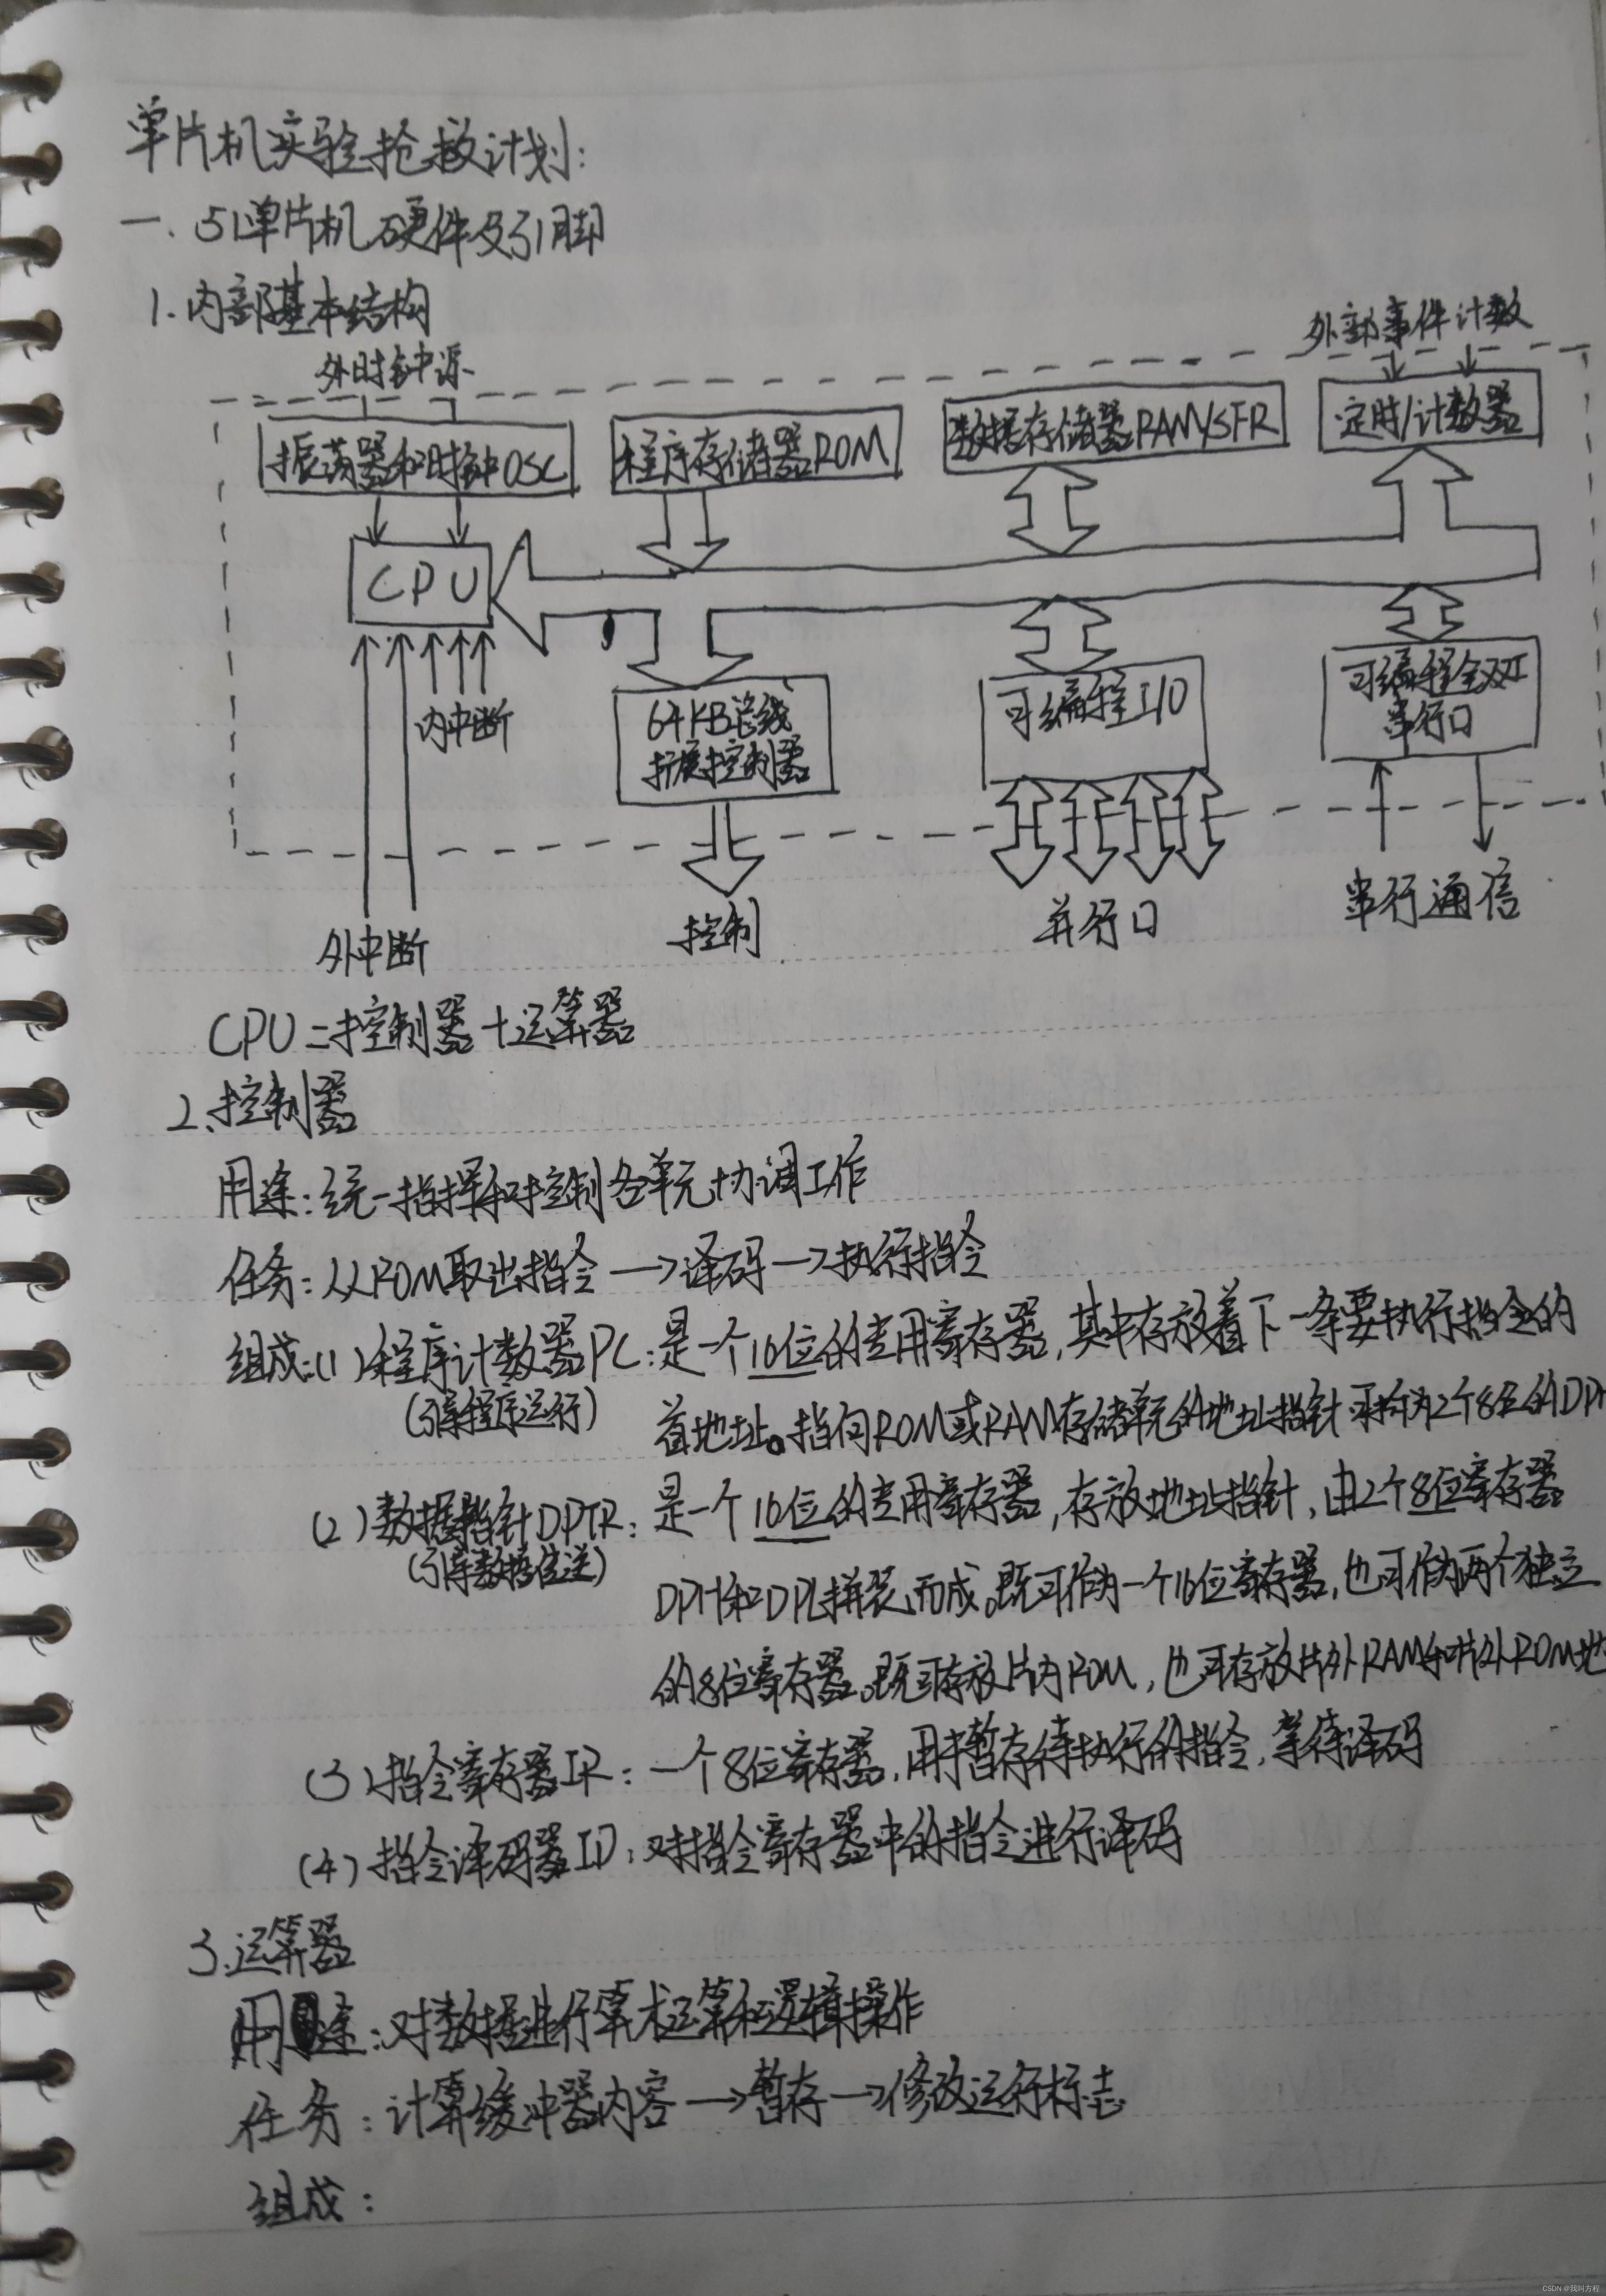 单片机实验抢救计划:
一. 51单片机硬件及引脚
1.内部基本结构
外部事件计数
外时钟源
振荡器和时钟OSC
程序存储器ROM
数据存储器RAM/SFR
定时/计数器
CPU
内中断
64KB总线
扩展控制器
可编程I/O
可编程全双工
串行口
外中断
控制
并行口
串行通信
CPU=控制器+运算器
2.控制器
用途:统一指挥和控制各单元协调工作
任务:从ROM取出指令→译码→执行指令
组成:(1)程序计数器PC:是一个16位的专用寄存器,其中存放着下一条要执行指令的
(引导程序运行)
首地址。指向ROM或RAM存储单元的地址指针可拆为2个8位的DPH
(2)数据指针DPTR:是一个16位的专用寄存器,存放地址指针,由2个8位寄存器
(引导数据传送)
DPH和DPL拼装而成。既可作为一个16位寄存器,也可作为两个独立
的8位寄存器。既可存放片内ROM,也可存放片外RAM和片外ROM地
(3)指令寄存器IR:一个8位寄存器,用来暂存待执行的指令,等待译码
(4)指令译码器ID:对指令寄存器中的指令进行译码
3.运算器
用途:对数据进行算术运算和逻辑操作
任务:计算缓冲器内容→暂存→修改运行标志
组成:
CSDN @我叫方程